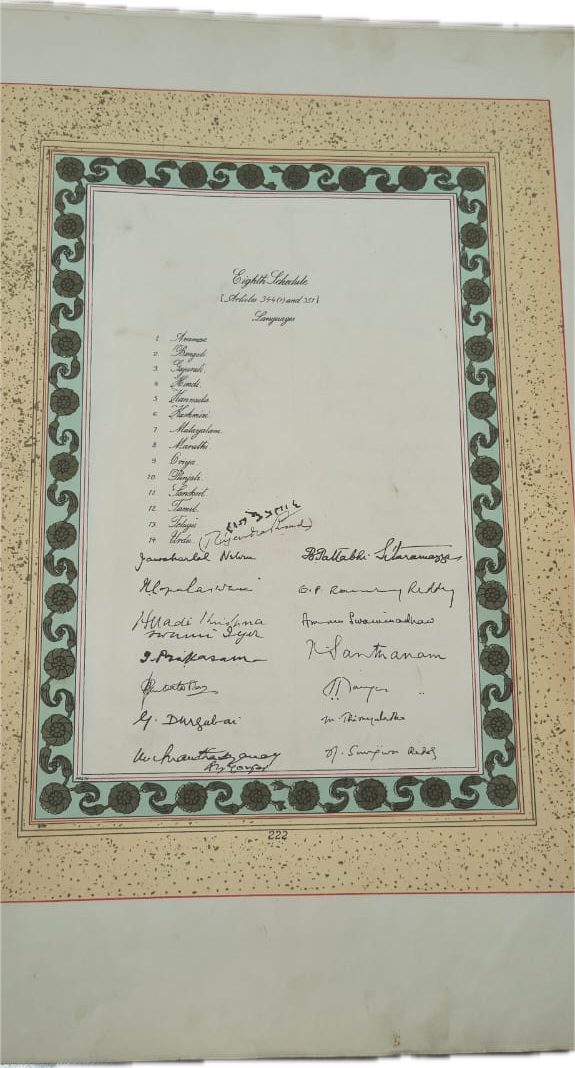 Eighth Schedule
[Articles 344(1) and 351]
Languages
1 Assamese.
2 Bengali.
3 Gujarati.
4 Hindi.
5 Kannada.
6 Kashmiri.
7 Malayalam.
8 Marathi.
9 Oriya.
10 Punjabi.
11 Sanskrit.
12 Tamil.
13 Telugu.
14 Urdu.
(Rajendra Prasad)
Jawaharlal Nehru
B. Pattabhi Sitaramayya
O.P. Ramaswamy Reddy
Alladi Krishna
swami Iyer
Ammu Swaminadhan
T. Prakasam
K Santhanam
G. Durgabai
M. Thirumala Rao
222